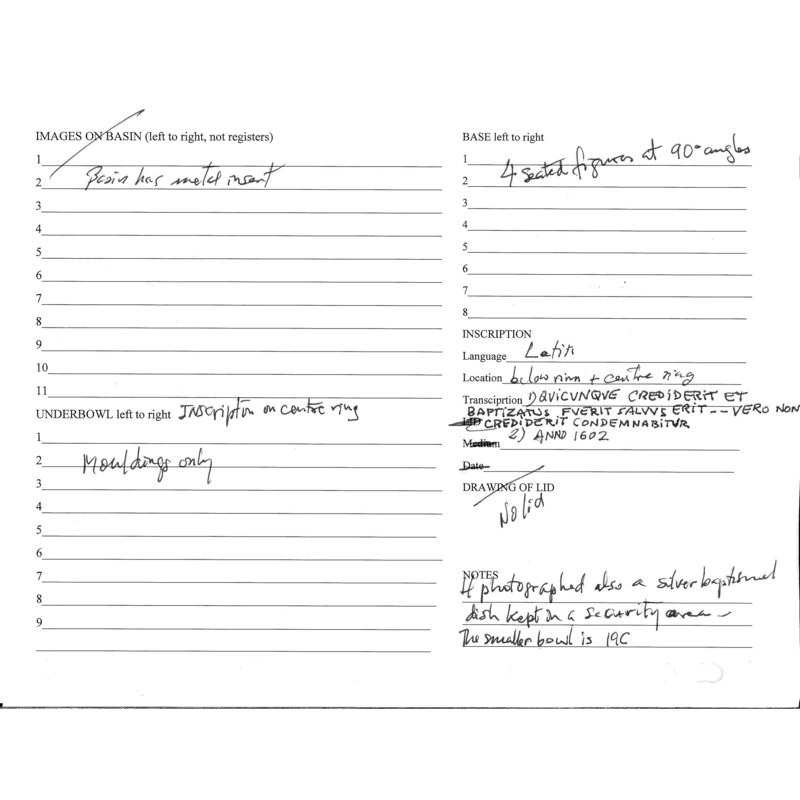 IMAGES ON BASIN (left to right, not registers)
1
2 Basin has metal insert
3
4
5
6
7
8
9
10
11
UNDERBOWL left to right INSCription on centre ring
1
2 Mouldings only
3
4
5
6
7
8
9
BASE left to right
1 4 seated figures at 90° angles
2
3
4
5
6
7
8
INSCRIPTION
Language Latin
Location below rim + centre ring
Transcirption 1) QVICVNQVE CREDIDERIT ET
BAPTIZATUS FVERIT SALVVS ERIT -- VERO NON
CREDIDERIT CONDEMNABITVR
Medium 2) ANNO 1602
Date
DRAWING OF LID
No lid
NOTES
photographed also a silver baptismal
dish kept in a security area –
The smaller bowl is 19C